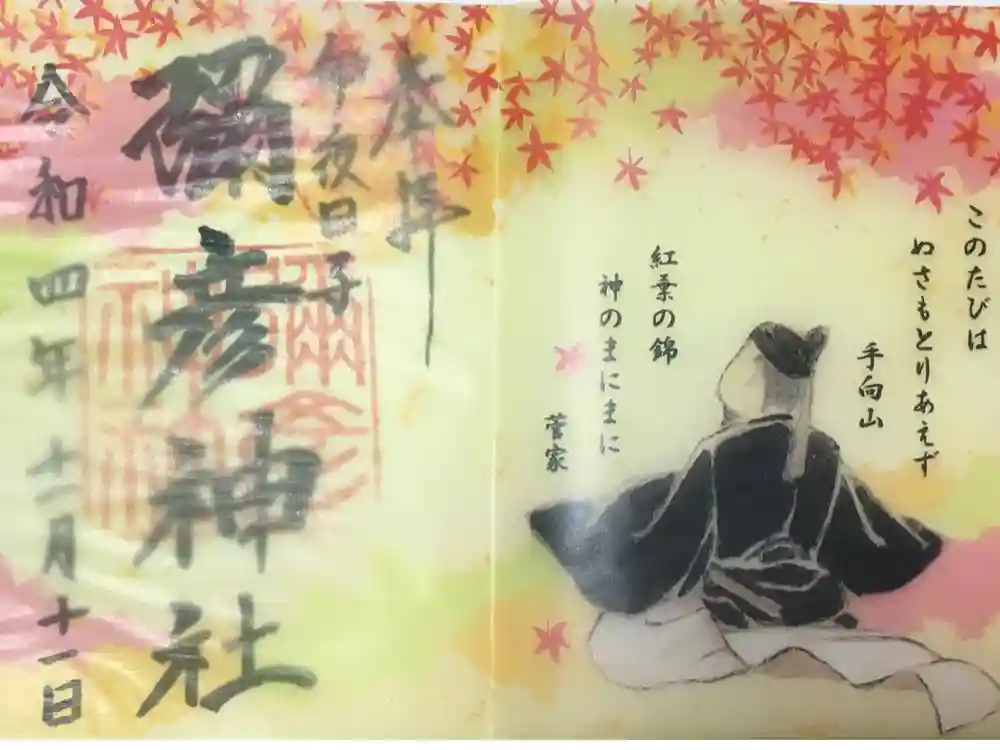 このたびは
ぬさもとりあえず
手向山
紅葉の錦
神のまにまに
菅家
奉拝
夜日子
彌彦神社
令和四年十一月十一日